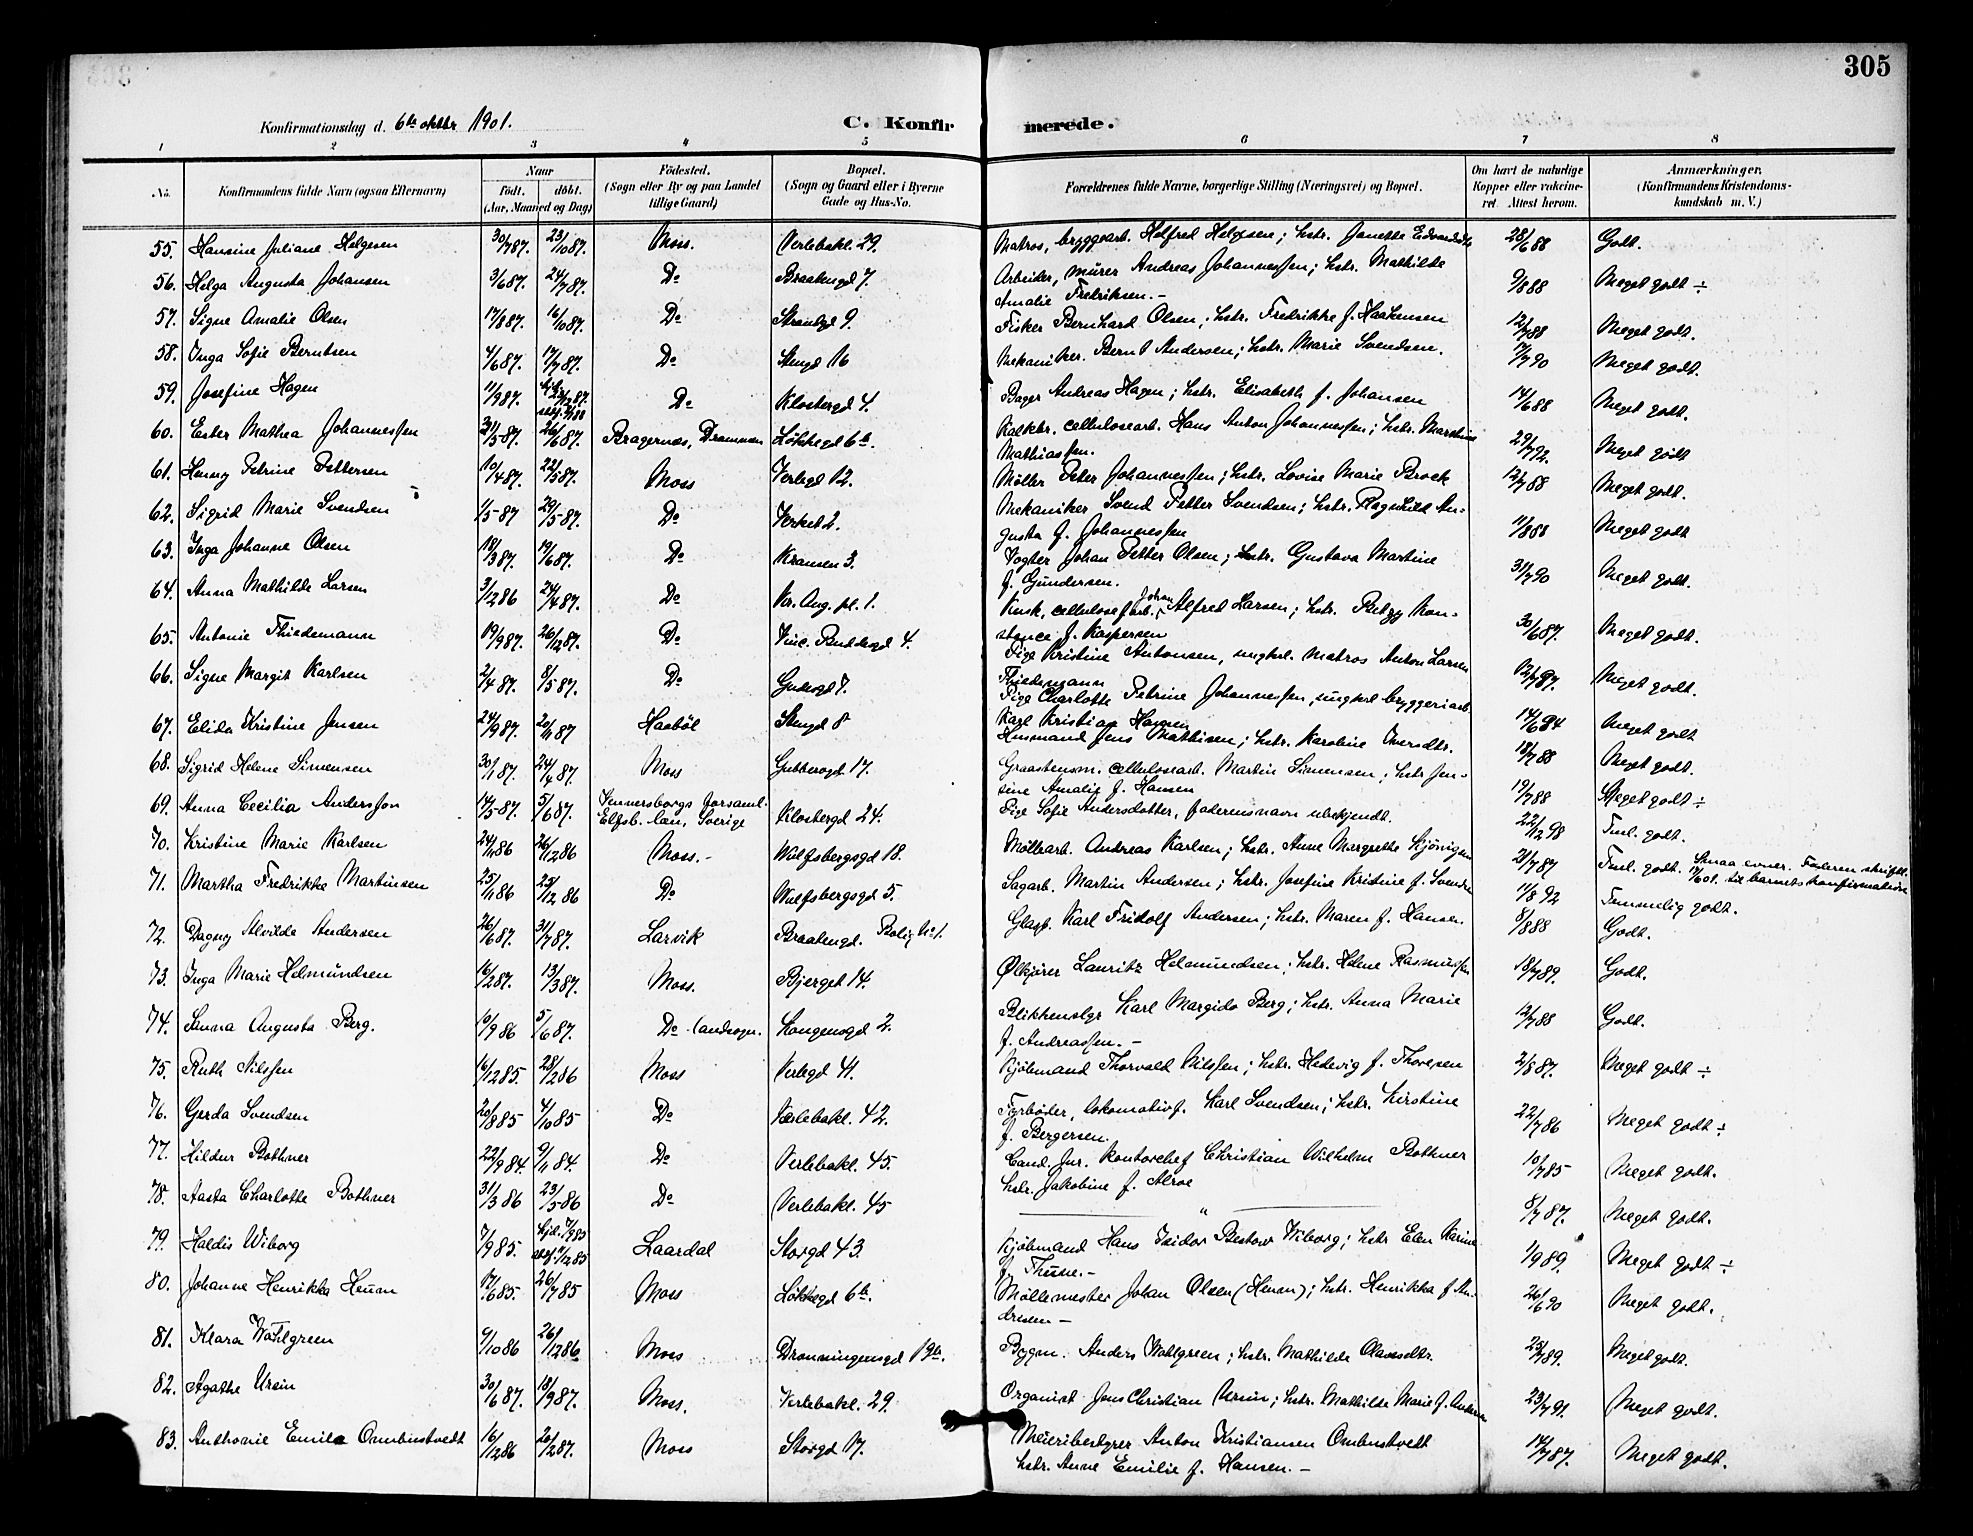 305
Konfirmationsdag d. 6te oktbr 1901.
C. Konfirmerede.
1 2 3 4 5 6 7 8
No.
Konfirmandens fulde Navn (ogsaa Efternavn)
Naar
födt. döbt.
(Aar, Maaned og Dag)
Födested.
(Sogn eller By og paa Landet
tillige Gaard)
Bopæl.
(Sogn og Gaard eller i Byerne
Gade og Hus-No.
Forældrenes fulde Navne, borgerlige Stilling (Næringsvei) og Bopæl.
Om havt de naturlige
Kopper eller vakcine-
ret. Attest herom.
Anmærkninger.
(Konfirmandens Kristendoms-
kundskab m. V.)
55. Hansine Juliane Helgesen 30/7 87. 23/10 87. Moss. Verlebakl. 29. Matros, bryggearb. Helfred Helgesen; hstr. Janette Edvardsdtr 28/6 88 Godt.
56. Helga Augusta Johansen 3/6 87. 24/7 87. Do Braatengd 7. Arbeider, murer Andreas Johannessen; hstr. Mathilde
Amalie Fredriksen. – 9/8 88 Meget godt ÷
57. Signe Amalie Olsen 17/8 87. 16/10 87. Do Strandgd 9. Fisker Bernhard Olsen; hstr. Fredrikke f. Haakensen 12/7 88 Meget godt.
58. Inga Sofie Berntsen 4/6 87. 17/7 87. Do Stengd 16 Mekaniker. Bernt Andersen; hstr. Marie Svendsen. 17/7 90 Meget godt.
59. Josefine Hagen 11/9 87. Do Klostergd 4. Bager Andreas Hagen; hstr. Elisabeth f. Johansen 14/6 88 Meget godt.
60. Ester Mathea Johannessen 31/5 87. 26/6 87. Bragernæs, Drammen Løkkegd 6b. cellulosearb. Hans Anton Johannessen; hstr. Marthine
Mathiassen. 29/7 92. Meget godt
61. Henny Petrine Pettersen 10/4 87. 22/5 87. Moss Verlegd 12. Møller Peter Johannessen; hstr. Lovise Marie Brock 12/7 88 Meget godt.
62. Sigrid Marie Svendsen 1/5 87 29/5 87. Do Verket 2. Mekaniker Svend Petter Svendsen; hstr. Ragnhild Au-
gusta f. Johannessen 11/8 88 Meget godt
63. Inga Johanne Olsen 18/3 87. 19/6 87. Do Kransen 3. Vogter Johan Petter Olsen; hstr. Gustava Martine
f. Gundersen. 31/7 90 Meget godt.
64. Anna Mathilde Larsen 3/12 86 24/4 87. Do Kr. Aug. pl. 1. Kusk, cellulosefarb. Johan Alfred Larsen; hstr. Betzy Kon-
stance f. Kaspersen 30/6 87. Meget godt.
65. Antonie Thiedemann 19/9 87. 26/12 87. Do Vinc. Buddesgd 4. Pige Kristine Antonsen, ungkrl. matros Anton Larsen
Thiedemann 12/7 87. Meget godt.
66. Signe Margit Karlsen 2/4 87. 8/5 87. Do Gudesgd 7. Pige Charlotte Petrine Johannessen, ungkrl bryggeriarb.
Karl Kristian Hansen 14/6 94 Meget godt
67. Elida Kristine Jensen 24/9 87. 20/11 87 Haabøl Stengd 8 Husmand Jens Mathisen; hstr. Karoline Iversdtr. 18/7 88 Meget godt.
68. Sigrid Helene Simensen 30/1 87. 24/4 87. Moss Gubberogt 17. Graastensm. cellulosearb. Martin Simensen; hstr Jen-
sine Amalie f. Hansen 19/7 88 Meget godt ÷
69. Anna Cecilia Andersson 14/5 87. 5/6 87. Vennersborgs forsaml.
Elfsb. län, Sverige Klostergd 24. Pige Sofie Andersdotter, faderens navn ubekjendt. 22/12 98 Tml. godt.
70. Kristine Marie Karlsen 24/11 86 26/12 86 Moss. – Wulfsbergsgd 18. Møllearb. Andreas Karlsen; hstr. Anne Margrethe 21/7 87 Tml. godt. Smaa evner. Faderen skriftl.
til barnets konfirmation
71. Martha Fredrikke Martinsen 25/11 86 25/12 86 Do Wulfsbergsgd 5. Sagarb. Martin Andersen; hstr. Josefine Kristine f. Svendsen 11/8 92 Temmelig godt.
72. Dagny Alvilde Andersen 26/6 87. 31/7 87. Larvik Braatengd. Bolig No 1. Glasp. Karl Fridolf Andersen; hstr. Maren f. Hansen. 8/8 88 Godt.
73. Inga Marie Helmundsen 16/2 87. 13/3 87. Moss. Bjerget 14. Ølkjører Lauritz Helmundsen; hstr. Helene Rasmussen 18/7 89. Godt.
74. Sanna Augusta Berg. 10/9 86 5/6 87. Do landsogn. Kongensgd 2. Blikkenslgr Karl Margido Berg; hstr. Anna Marie
f. Andreassen. – 12/7 88 Godt.
75. Ruth Nilssen 16/12 85. 28/2 86 Moss Verlegd 41. Kjøbmand Thorvald Nilssen; hstr. Hedevig f. Thoresen 2/8 87. Meget godt ÷
76. Gerda Svendsen 20/8 85 4/10 85 Do Verlebakl. 42. Fyrbøder, lokomotivf. Karl Svendsen; hstr. Kirstine
f. Bergersen. 22/7 86 Meget godt ÷
77. Hildur Bothner 22/9 84 9/11 84. Do Verlebakl. 45. Cand. jur. kontorchef Christian Wilhelm Bothner
hstr. Jakobine f. Alroe 10/7 85 Meget godt.
78. Aasta Charlotte Bothner 31/3 86 23/5 86 Do Verlebakl. 45 " 8/7 87. Meget godt.
79. Haldis Wiborg 7/9 85. Hjd. 7/9 85 Laardal Storgd 43. Kjøbmand Hans Isidor Wiborg; hstr Elen Karine
f. Thune. – 1/9 89. Meget godt ÷
80. Johanne Henrikke Heum 17/6 85. 26/7 85 Moss Løkkegd 6b. Møllemester Johan Olsen (Heum); hstr. Henrikka f. An-
dresen – 26/6 90 Meget godt.
81. Klara Wahlgreen 9/10 86 26/12 86 Moss Dronningensgd 19b. Bygm. Anders Wahlgreen; hstr. Mathilde Olavesdtr. 25/7 89. Meget godt.
82. Agathe Ursin 30/6 87. 18/9 87. Moss. Verlebakl. 29. Organist Jens Christian Ursin; hstr. Mathilde Marie f. Andersen 23/7 91. Meget godt.
83. Anthonie Emilie Ombustvedt 16/12 86 20/2 87. Moss Storgd 17. Meieribestyrer Anton Kristiansen Ombustvedt
hstr. Anne Emilie f. Hansen. – 14/7 87. Meget godt.